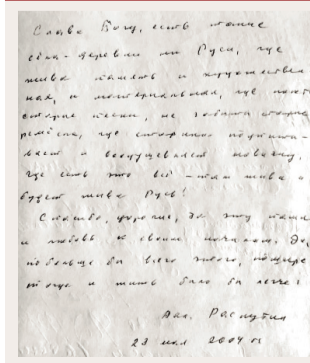 Слава Богу, есть такие
села-деревни на Руси, где
жива память и художествен
ная, и материальная, где поют
старые песни, не забыты старые
ремёсла, где старину
и воодушевляет новизну.
Где есть это всё – там жива и
будет жива Русь!
Спасибо, дорогие, за эту память
и любовь к своим началам. Да
побольше бы всего этого, пошире
и жить было бы легче!
Вал. Распутин
23 мая 2004 г.